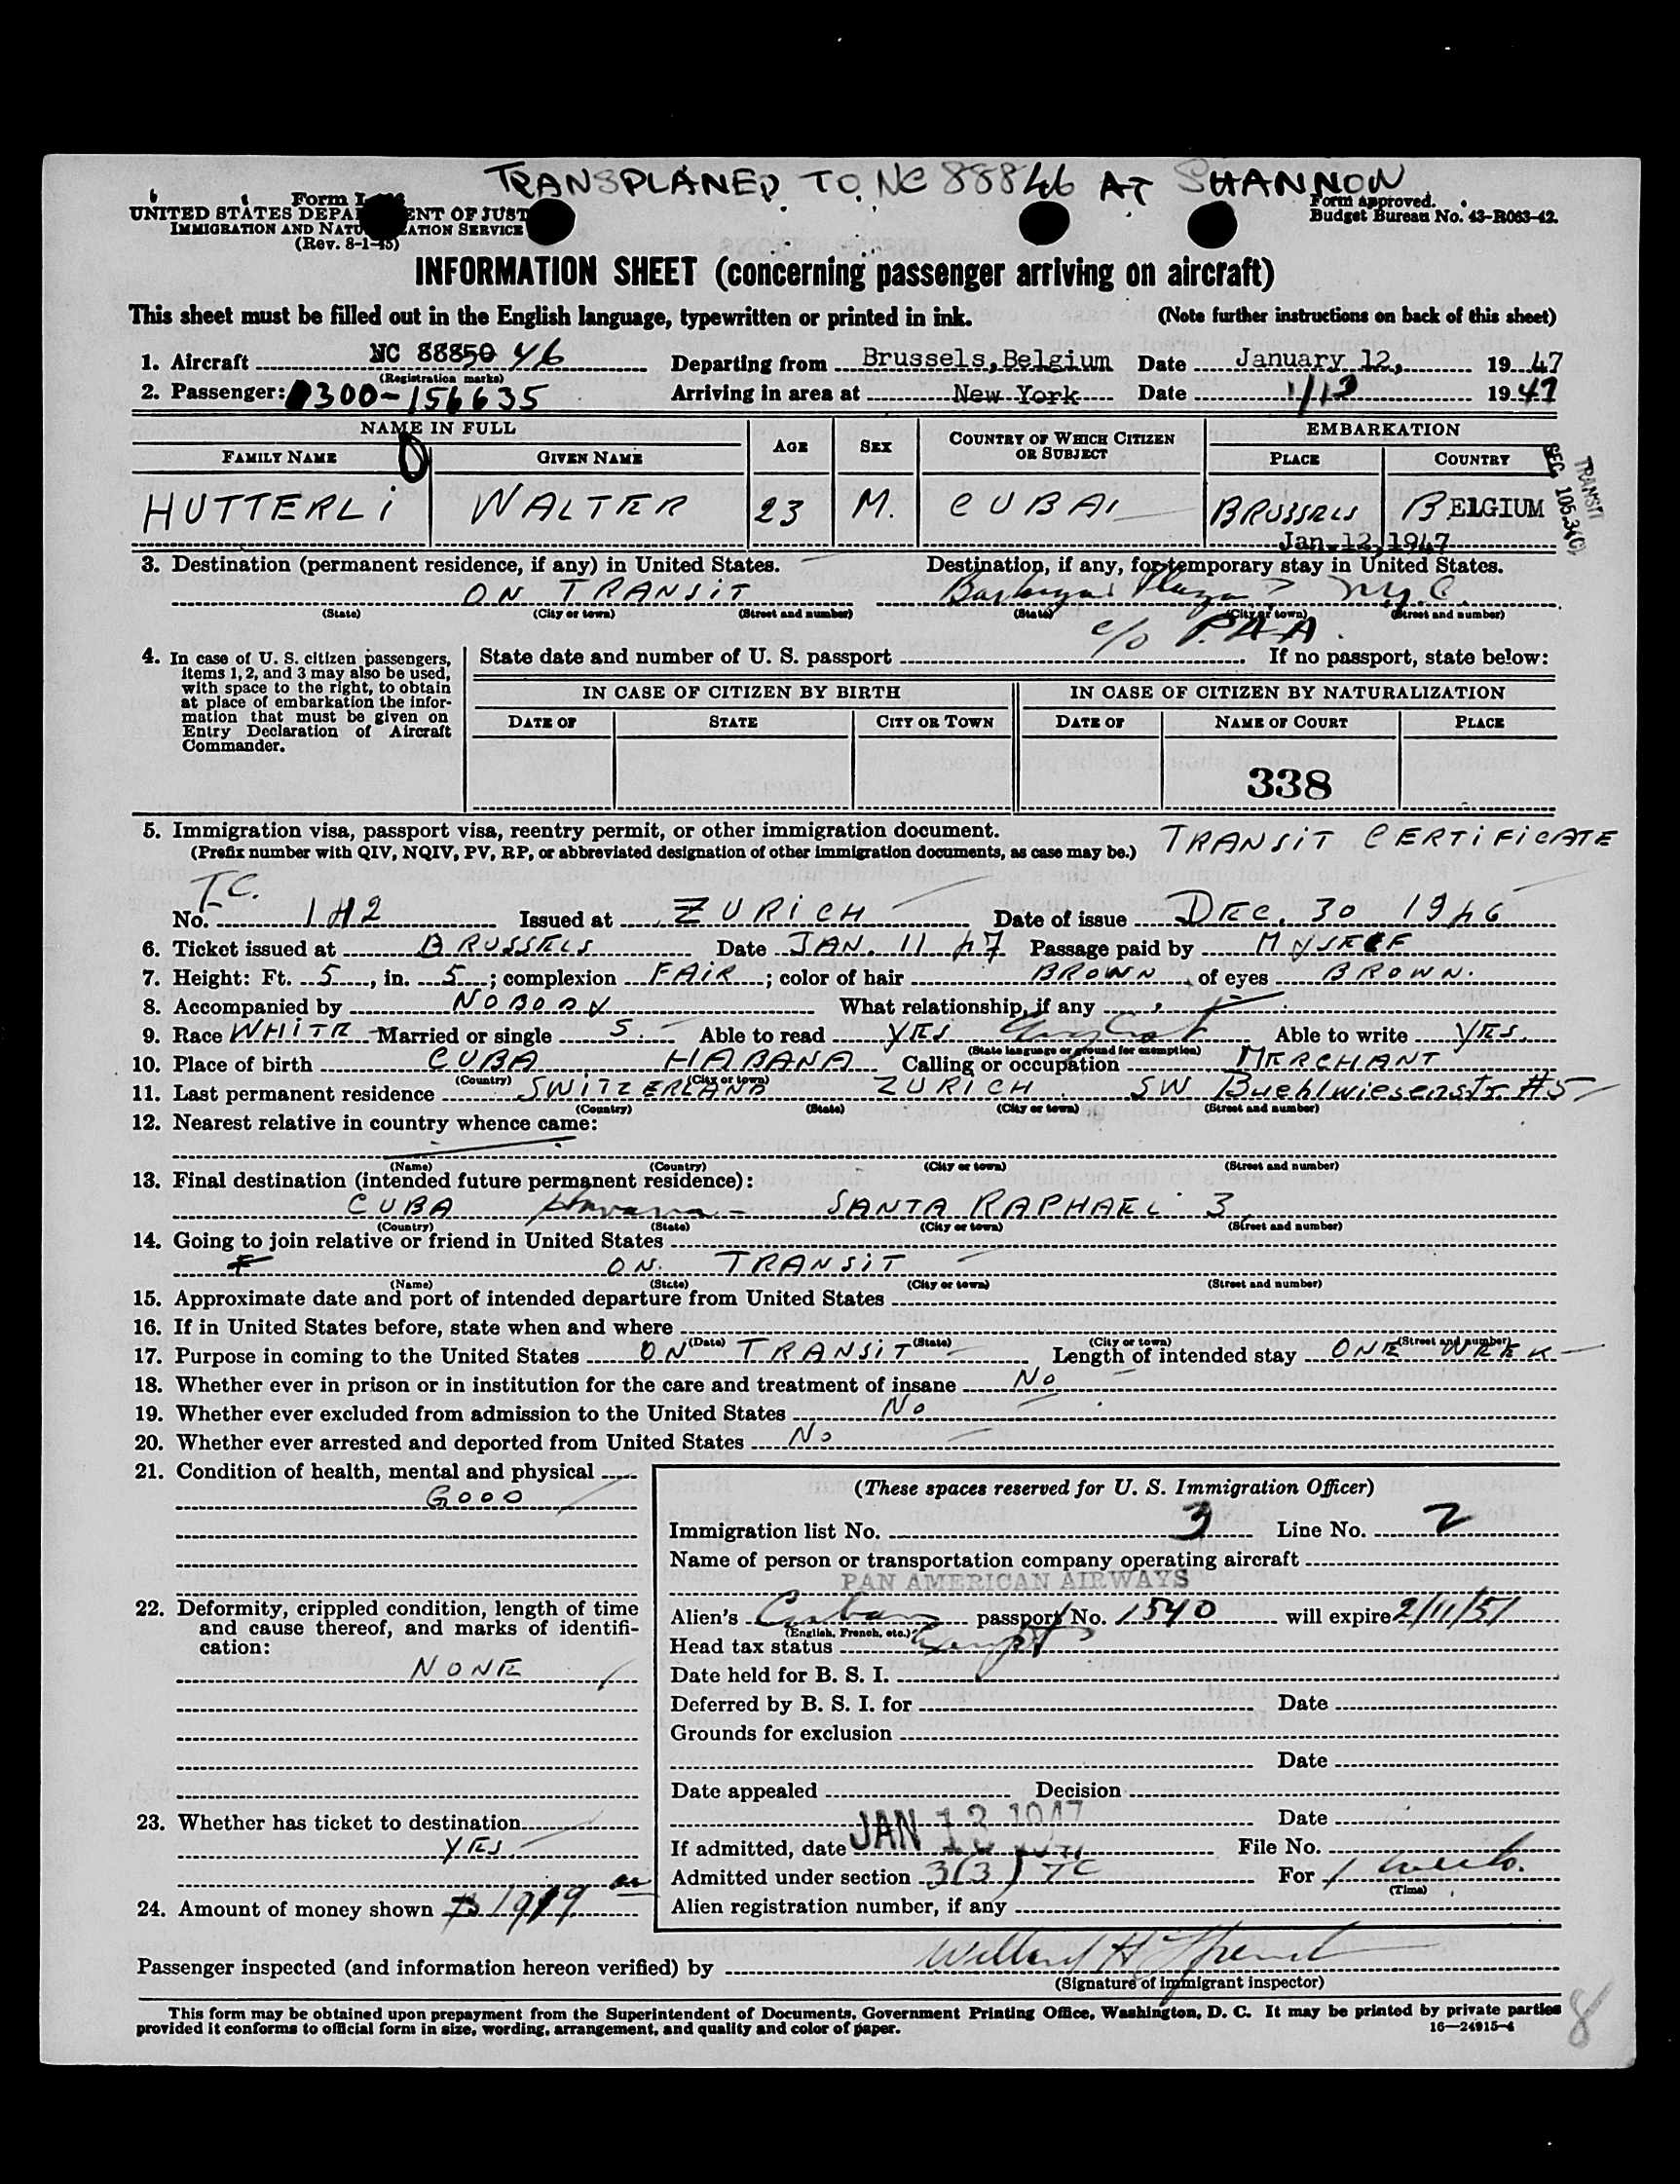 TRANSPLANED TO NC 88846 AT SHANNON
Form approved.
Budget Bureau No. 43-R063-42.
Form I-
UNITED STATES DEPA ENT OF JUST
IMMIGRATION AND NATU ATION SERVICE
(Rev. 8-1-45)
INFORMATION SHEET (concerning passenger arriving on aircraft)
This sheet must be filled out in the English language, typewritten or printed in ink. (Note further instructions on back of this sheet)
1. Aircraft NC 88850 46 Departing from Brussels, Belgium Date January 12, 1947
(Registration marks)
2. Passenger: 0300-156635 Arriving in area at New York Date 1/13 1947
NAME IN FULL AGE SEX COUNTRY OF WHICH CITIZEN OR SUBJECT EMBARKATION
FAMILY NAME GIVEN NAME PLACE COUNTRY
HUTTERLI WALTER 23 M. CUBA BRUSSELS BELGIUM
Jan. 12, 1947
TRANSIT
SEC. 105.3(C)
3. Destination (permanent residence, if any) in United States. Destination, if any, for temporary stay in United States.
ON TRANSIT Plaza N.Y.C.
(State) (City or town) (Street and number) (State) (City or town) (Street and number)
c/o P.A.A.
4. In case of U. S. citizen passengers, items 1, 2, and 3 may also be used, with space to the right, to obtain at place of embarkation the information that must be given on Entry Declaration of Aircraft Commander.
State date and number of U. S. passport If no passport, state below:
IN CASE OF CITIZEN BY BIRTH IN CASE OF CITIZEN BY NATURALIZATION
DATE OF STATE CITY OR TOWN DATE OF NAME OF COURT PLACE
338
5. Immigration visa, passport visa, reentry permit, or other immigration document. TRANSIT CERTIFICATE
(Prefix number with QIV, NQIV, PV, RP, or abbreviated designation of other immigration documents, as case may be.)
T.C.
No. 142 Issued at ZURICH Date of issue DEC. 30 1946
6. Ticket issued at BRUSSELS Date JAN. 11 47 Passage paid by MYSELF
7. Height: Ft. 5, in. 5; complexion FAIR; color of hair BROWN, of eyes BROWN.
8. Accompanied by NOBODY What relationship, if any
9. Race WHITE Married or single S. Able to read YES Able to write YES.
(State language or ground for exemption)
10. Place of birth CUBA, HABANA Calling or occupation MERCHANT
(Country) (City or town)
11. Last permanent residence SWITZERLAND ZURICH SW Buehlwiesenstr. #5
(Country) (State) (City or town) (Street and number)
12. Nearest relative in country whence came:
(Name) (Country) (City or town) (Street and number)
13. Final destination (intended future permanent residence):
CUBA Havana SANTA RAPHAEL 3
(Country) (State) (City or town) (Street and number)
14. Going to join relative or friend in United States
ON TRANSIT
(Name) (State) (City or town) (Street and number)
15. Approximate date and port of intended departure from United States
16. If in United States before, state when and where
(Date) (State) (City or town) (Street and number)
17. Purpose in coming to the United States ON TRANSIT Length of intended stay ONE WEEK
18. Whether ever in prison or in institution for the care and treatment of insane No
19. Whether ever excluded from admission to the United States No
20. Whether ever arrested and deported from United States No
21. Condition of health, mental and physical
GOOD
22. Deformity, crippled condition, length of time and cause thereof, and marks of identification:
NONE
23. Whether has ticket to destination
YES.
24. Amount of money shown $1919
(These spaces reserved for U. S. Immigration Officer)
Immigration list No. 3 Line No. 2
Name of person or transportation company operating aircraft
PAN AMERICAN AIRWAYS
Alien's Cuban passport No. 1540 will expire 2/11/51
(English, French, etc.)
Head tax status Exempt
Date held for B. S. I.
Deferred by B. S. I. for Date
Grounds for exclusion
Date
Date appealed Decision
Date
If admitted, date JAN 13 1947 File No.
Admitted under section 3(3) TC For 1 week.
(Time)
Alien registration number, if any
Passenger inspected (and information hereon verified) by Willard H
(Signature of immigrant inspector)
This form may be obtained upon prepayment from the Superintendent of Documents, Government Printing Office, Washington, D. C. It may be printed by private parties
provided it conforms to official form in size, wording, arrangement, and quality and color of paper. 16—24915-4
8